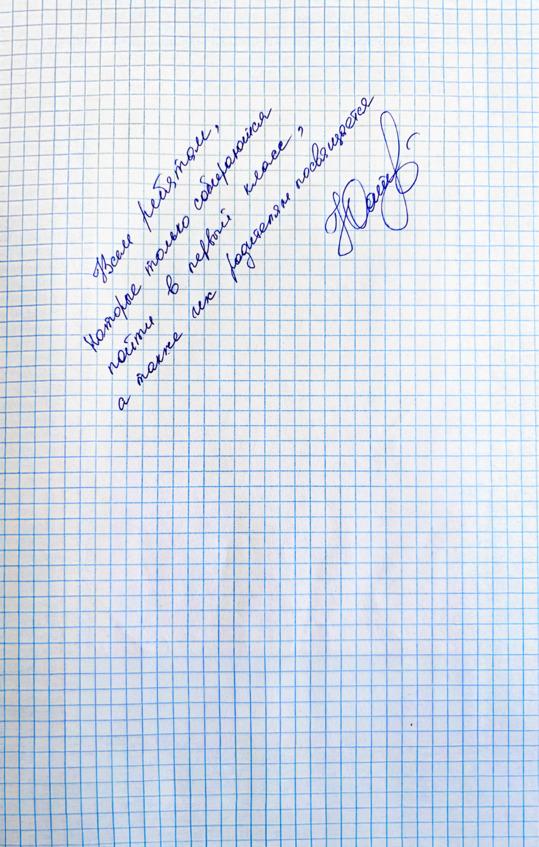 Всем ребятам,
которые только собираются
пойти в первый класс,
а также их родителям посвящается